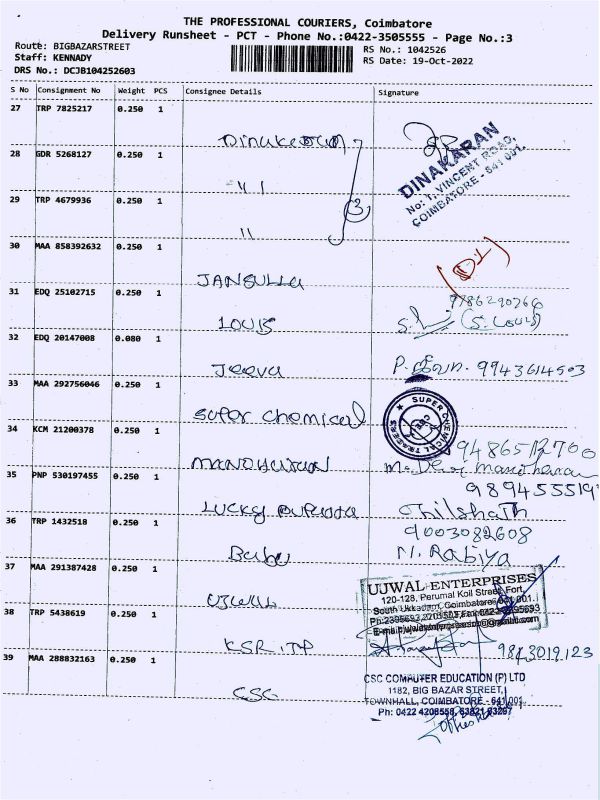 THE PROFESSIONAL COURIERS, Coimbatore
Delivery Runsheet - PCT - Phone No.:0422-3505555 - Page No.:3
Route: BIGBAZARSTREET
RS No.: 1042526
Staff: KENNADY
RS Date: 19-Oct-2022
DRS No.: DCJB104252603
S No Consignment No Weight PCS Consignee Details Signature
27 TRP 7825217 0.250 1
Dinakaran
DINAKARAN
No: 1, VINCENT ROAD,
COIMBATORE - 641 001.
28 GDR 5268127 0.250 1
" 1
29 TRP 4679936 0.250 1
3
"
30 MAA 858392632 0.250 1
JANSULLA
31 EDQ 25102715 0.250 1
9786290266
LOUIS
(S. LOUIS)
32 EDQ 20147008 0.080 1
Jeeva
P. ஜீவா. 9943614503
33 MAA 292756046 0.250 1
Super chemical
SUPER CHEMICAL TRADERS
34 KCM 21200378 0.250 1
9486512700
MANOHARAN
M. Devi Manoharan
35 PNP 530197455 0.250 1
9894555519
LUCKY
36 TRP 1432518 0.250 1
9003082608
Babu
M. Rabiya
37 MAA 291387428 0.250 1
UJWAL ENTERPRISES
120-128, Perumal Koil Street, Fort,
South Ukkadam, Coimbatore-641 001.
38 TRP 5438619 0.250 1
KSR
9843019123
39 MAA 288832163 0.250 1
CSC
CSC COMPUTER EDUCATION (P) LTD
1182, BIG BAZAR STREET,
TOWNHALL, COIMBATORE - 641 001.
Ph: 0422 4208558, 63821 83297